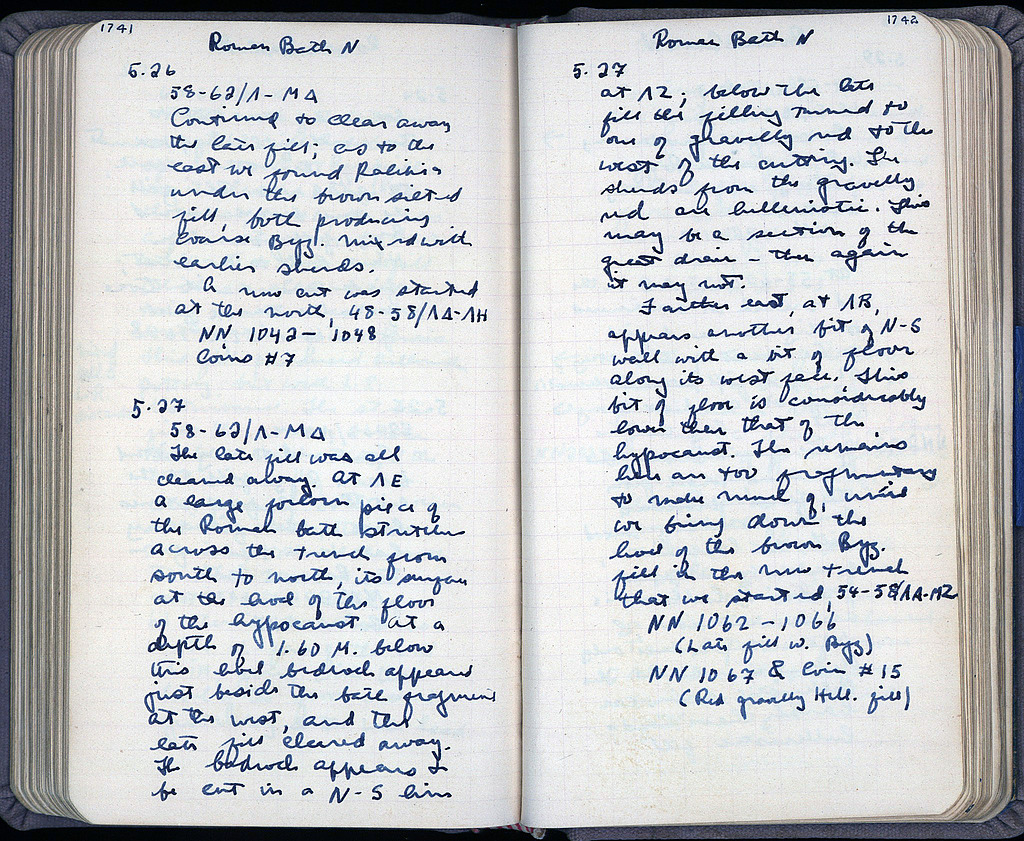 1741
Roman Bath N
5.26
58-62/Λ-ΜΔ
Continued to clear away
the late fill; as to the
east we found
under the brown silted
fill, both producing
coarse Byz. mixed with
earlier sherds.
A new cut was started
at the north, 48-58/ΛΔ-ΛΗ
NN 1042 - 1048
Coins #7
5.27
58-62/Λ-ΜΔ
The late fill was all
cleared away. At ΛΕ
a large forlorn piece of
the Roman bath stretches
across the trench from
south to north, its surface
at the level of the floor
of the hypocaust. At a
depth of 1.60 M. below
this level bedrock appears
just beside the bath fragment
at the west, and the
late fill cleared away.
The bedrock appears to
be cut in a N-S line
1742
Roman Bath N
5.27
at ΛΖ; below the late
fill the filling turned to
one of gravelly red to the
west of the cutting. The
sherds from the gravelly
red are hellenistic. This
may be a section of the
great drain - then again
it may not.
Farther east, at ΛΒ,
appears another bit of N-S
wall with a bit of floor
along its west face. This
bit of floor is considerably
lower than that of the
hypocaust. The remains
here are too fragmentary
to make much of, until
we bring down the
level of the brown Byz.
fill in the new trench
that we started, 54-58/ΛΑ-ΜΖ
NN 1062 - 1066
(Late fill w. Byz)
NN 1067 & Coin #15
(Red gravelly Hell. fill)